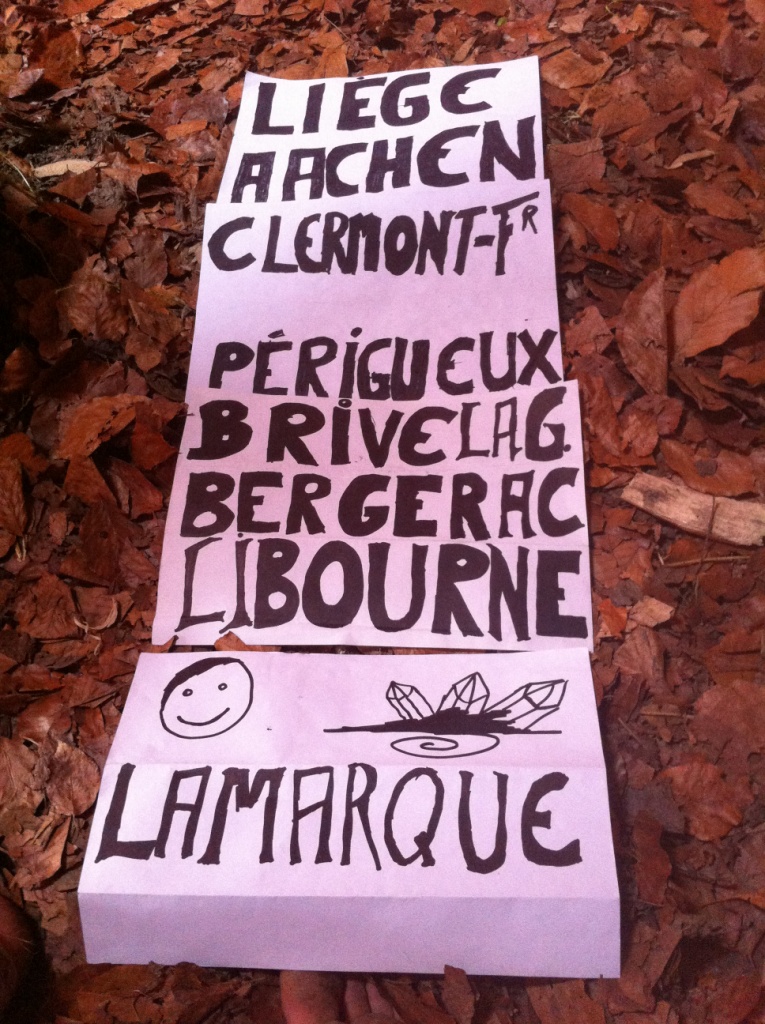 LIÈGE
AACHEN
CLERMONT-FR
PÉRIGUEUX
BRIVELAG.
BERGERAC
LIBOURNE
LAMARQUE